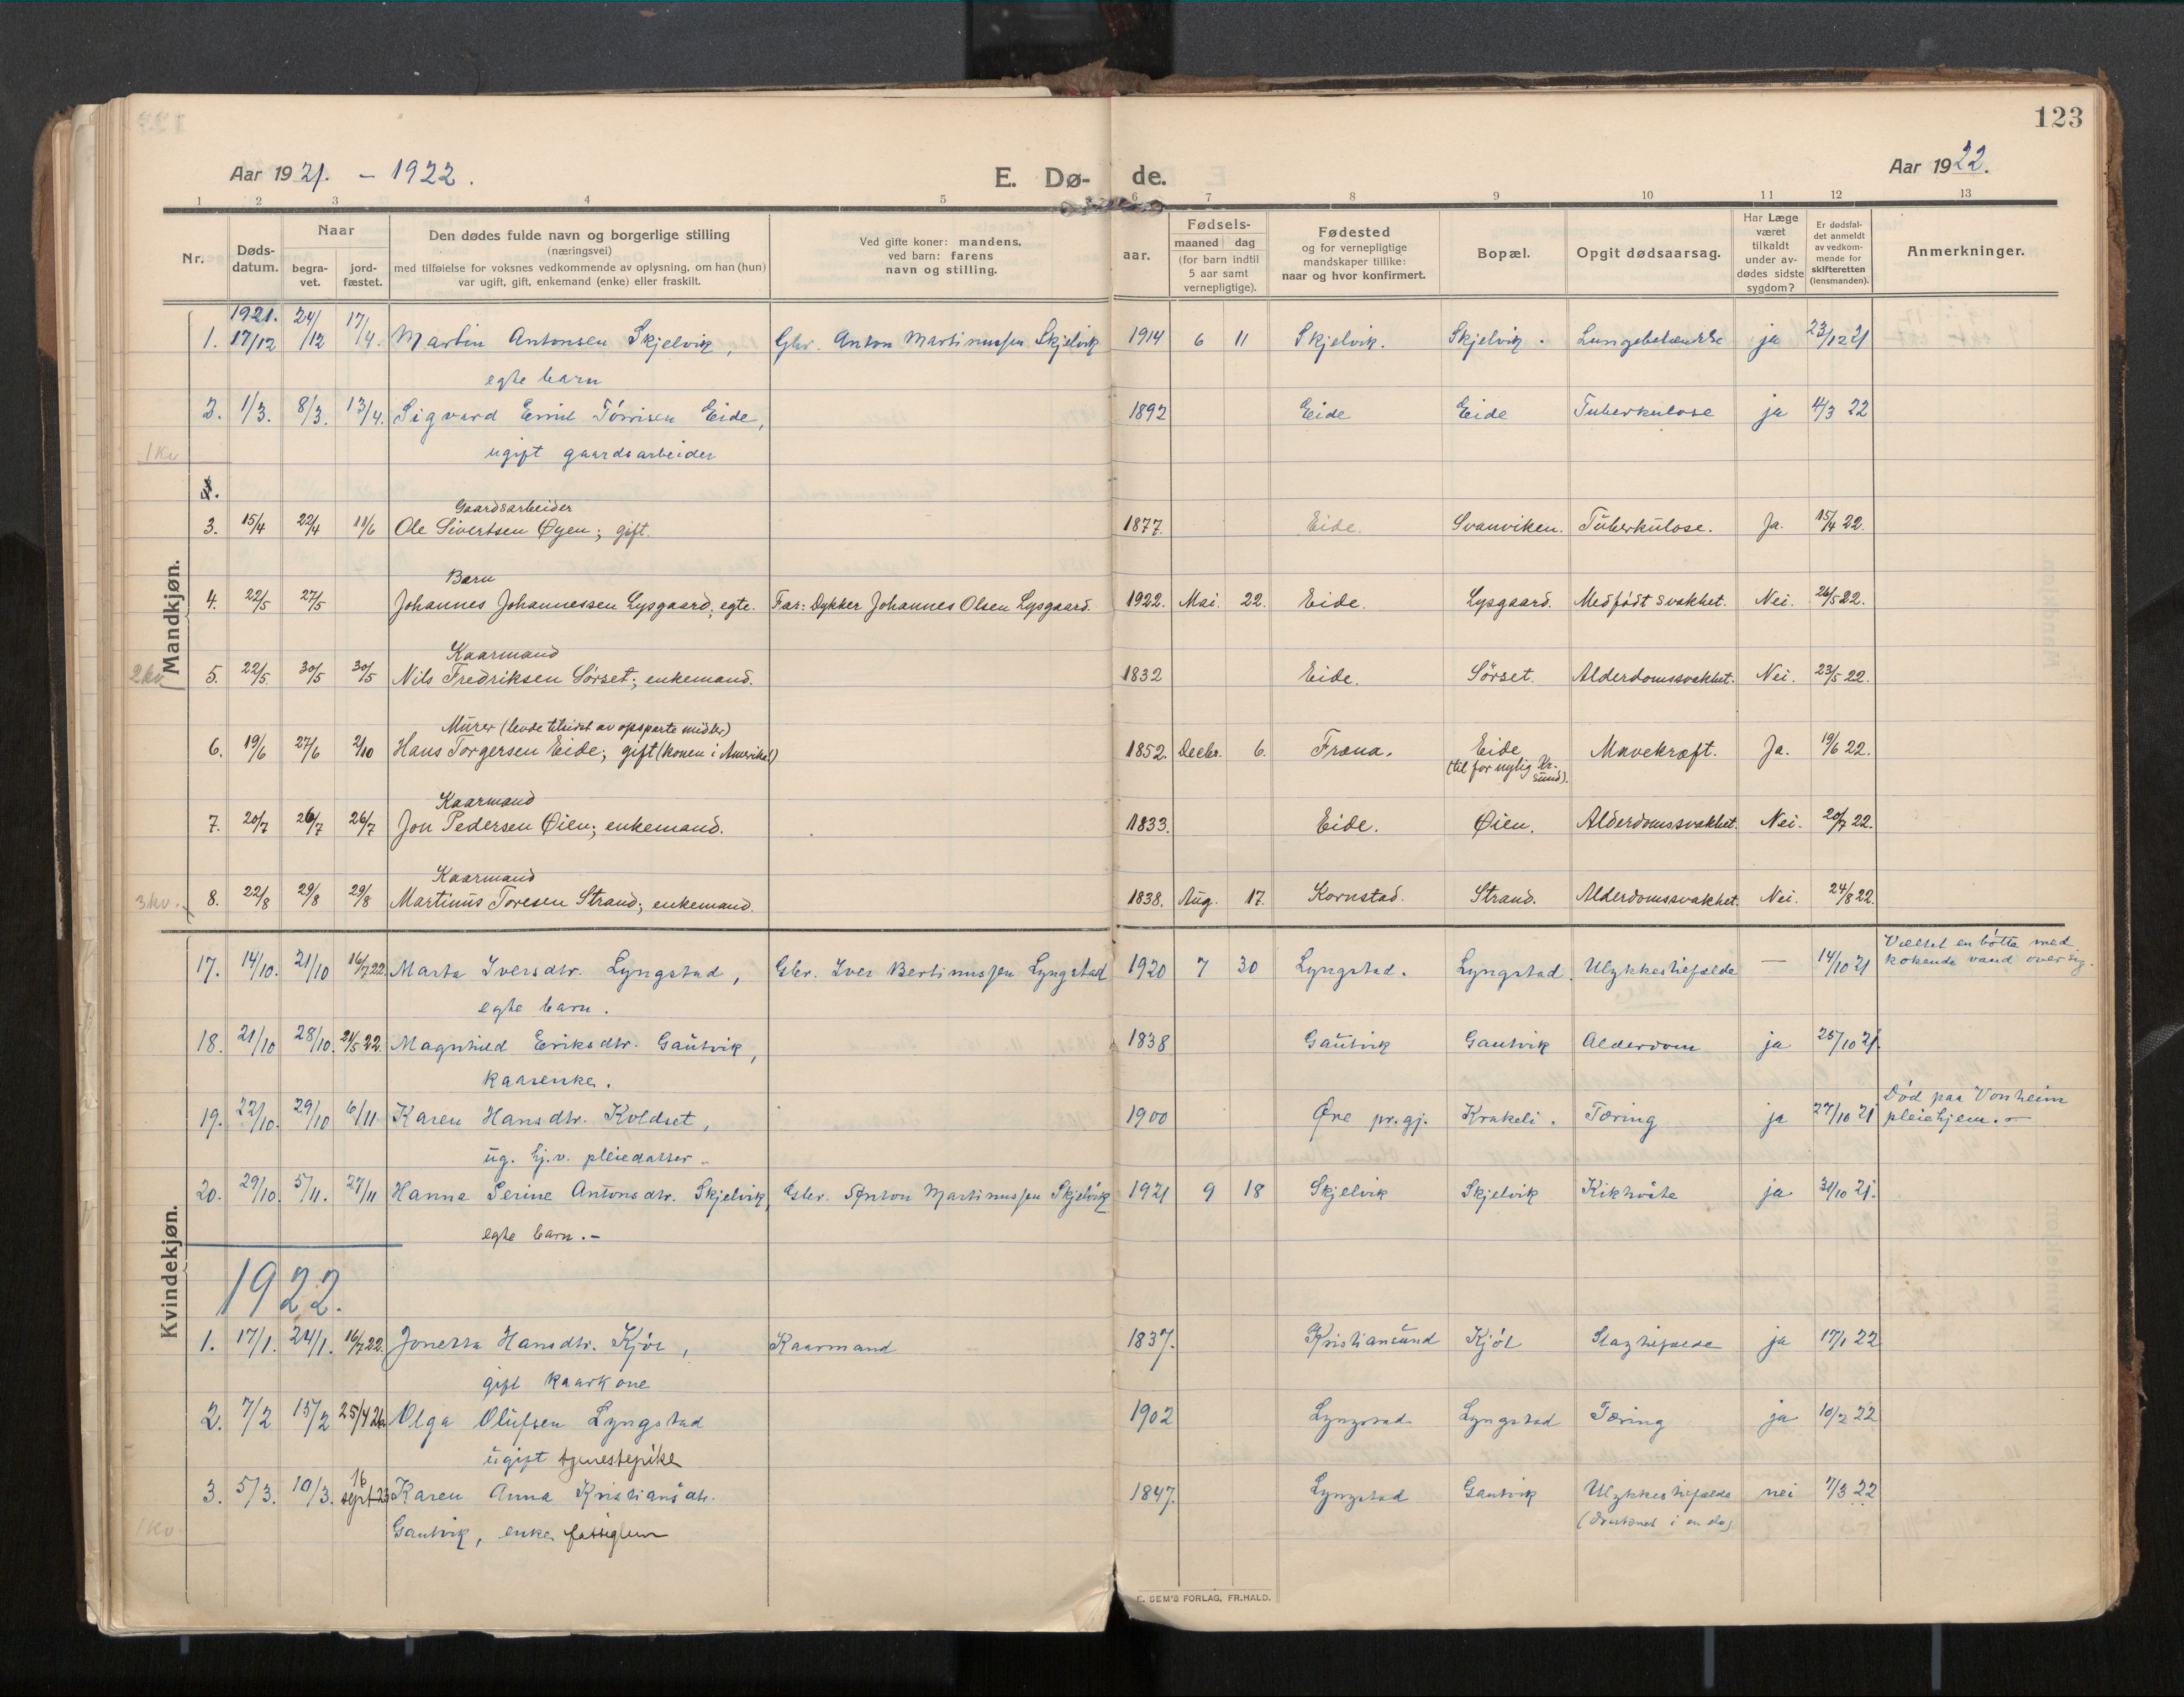 123
Aar 1921. – 1922.
E. Dø- de.
Aar 1922.
1 2 3 4 5 6 7 8 9 10 11 12 13
Nr.
Døds-
datum.
Naar
begra-
vet.
jord-
fæstet.
Den dødes fulde navn og borgerlige stilling
(næringsvei)
med tilføielse for voksnes vedkommende av oplysning, om han (hun)
var ugift, gift, enkemand (enke) eller fraskilt.
Ved gifte koner: mandens,
ved barn: farens
navn og stilling.
Fødsels-
aar.
maaned dag
(for barn indtil
5 aar samt
vernepligtige).
Fødested
og for vernepligtige
mandskaper tillike:
naar og hvor konfirmert.
Bopæl.
Opgit dødsaarsag.
Har Læge
været
tilkaldt
under av-
dødes sidste
sygdom?
Er dødsfal-
det anmeldt
av vedkom-
mende for
skifteretten
(lensmanden).
Anmerkninger.
Mandkjøn.
1921.
1. 17/12 24/12 17/4. Martin Antonsen Skjelvik, Gbr. Anton Martinussen Skjelvik 1914 6 11 Skjelvik. Skjelvik. Lungebetændelse ja 23/12 21
egte barn
2. 1/3. 8/3. 13/4. Sigvard Emil Tørrisen Eide, 1892 Eide Eide Tuberkulose ja 11/3 22
1 kv
ugift gaardsarbeider
Gaardsarbeider
3. 15/4 22/4 11/6 Ole Sivertsen Øyen; gift. 1877. Eide. Svanviken. Tuberkulose. Ja. 15/4 22.
Barn
4. 22/5 27/5 Johannes Johannessen Lysgaard; egte. Far: Dykker Johannes Olsen Lysgaard. 1922. Mai. 22. Eide. Lysgaard. Medfødt svakhet. Nei. 26/5 22.
Kaarmand
2 kv. 5. 22/5. 30/5 30/5 Nils Fredriksen Sørset; enkemand. 1832 Eide. Sørset. Alderdomssvakhet. Nei. 23/5 22.
Murer (levde tilsidst av opsparte midler)
6. 19/6 27/6 2/10 Hans Torgersen Eide; gift (konen i Amerika!) 1852. Decbr. 6. Fræna. Eide Mavekræft. Ja. 19/6 22.
(til for nylig Kr.-
sund).
Kaarmand
7. 20/7 26/7 26/7 Jon Pedersen Øien; enkemand. 1833. Eide. Øien. Alderdomssvakhet. Nei. 20/7 22.
Kaarmand
3 kv. 8. 22/8 29/8 29/8 Martinus Toresen Strand; enkemand. 1838. Aug. 17. Kornstad. Strand. Alderdomssvakhet. Nei. 24/8 22.
Kvindekjøn.
Væltet en bøtte med
17. 14/10. 21/10 16/7 22. Marta Iversdtr. Lyngstad, Gbr. Iver Bertinussen Lyngstad 1920 7 30 Lyngstad. Lyngstad. Ulykkestilfælde — 14/10 21 kokende vand over sig.
egte barn.
18. 21/10 28/10. 21/5 22. Magnhild Eriksdtr. Gautvik, 1838 Gautvik Gautvik Alderdom ja 25/10 21.
kaarenke.
Død paa Vonheim
19. 22/10. 29/10 6/11 Karen Hansdtr. Koldset, 1900 Øre pr.gj. Krakeli. Tæring ja 27/10 21 pleiehjem.
ug. hj.v. pleiedatter
20. 29/10. 5/11. 27/11 Hanna Serine Antonsdtr. Skjelvik, Gbr. Anton Martinussen Skjelvik 1921 9 18 Skjelvik Skjelvik Kikhoste ja 31/10 21.
egte barn. –
1922.
1. 17/1. 24/1. 16/7 22. Jonetta Hansdtr. Kjøl, Kaarmand 1837. Kristiansund Kjøl Slagtilfælde ja 17/1 22
gift kaarkone
2. 7/2 15/2 25/4 26 Olga Olufsen Lyngstad 1902 Lyngstad Lyngstad Tæring ja 10/2 22
ugift tjenestepike
3. 5/3. 10/3. 16 sept 23 Karen Anna Kristiansdtr. 1847. Lyngstad Gautvik Ulykkestilfælde nei 7/3 22
1 kv. Gautvik, enke fattiglem (druknet i en elv)
E. SEM'S FORLAG, FR.HALD.